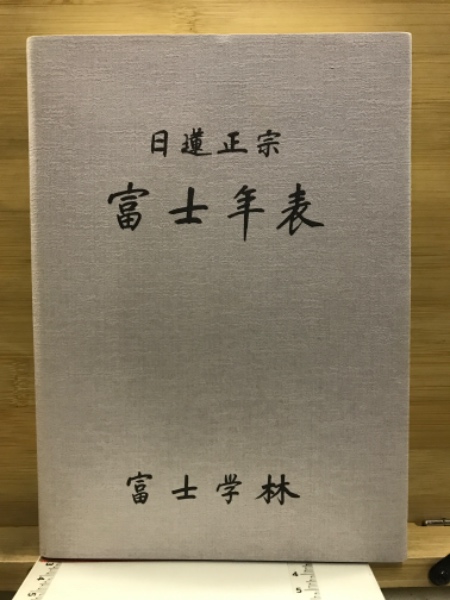 日蓮正宗
富士年表
富士学林